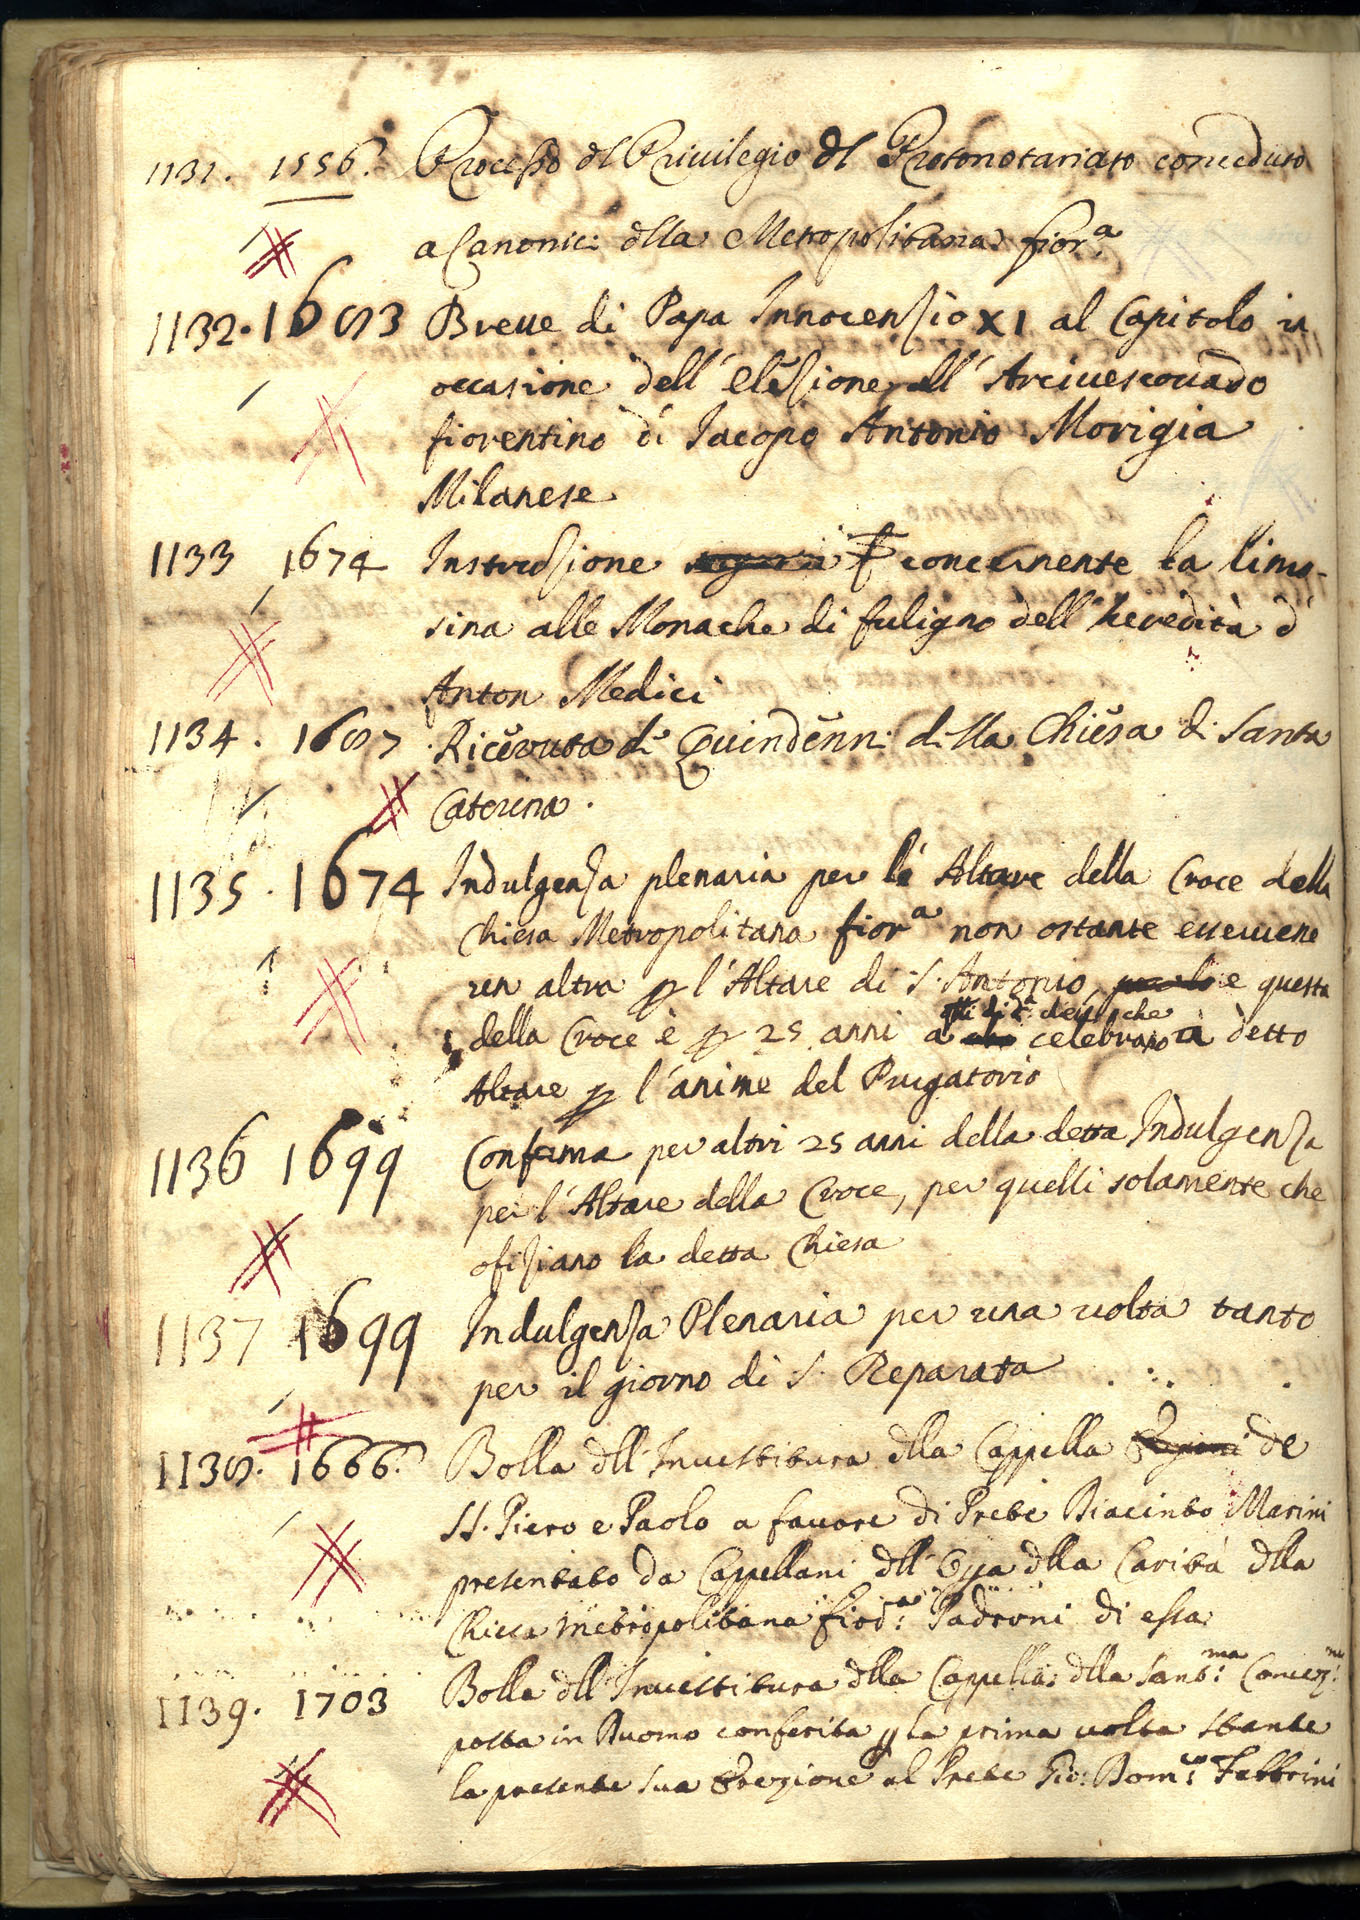 1131. 1556. Processo dl Privilegio dl Protonotariato conceduto
a Canonici dlla Metropolitana fior.a
1132. 1683 Breue di Papa Innocenzio XI al Capitolo in
occasione dell'elezione all'Arciuescouado
fiorentino di Iacopo Antonio Morigia
Milanese
1133 1674 Instruzione concernente la limo-
sina alle Monache di fuligno dell'heredità d
Anton Medici
1134. 1687 Riceuuta di Quindenni della Chiesa di Santa
Caterina.
1135. 1674 Indulgenza plenaria per le Altare della Croce della
Chiesa Metropolitana fior.a non ostante esseruene
un altra p l'Altare di S. Antonio, e questa
della Croce è p 25 anni a che celebrano à detto
Altare p l'anime del Purgatorio
1136 1699 Conferma per altri 25 anni della detta Indulgenza
per l'Altare della Croce, per quelli solamente che
ofiziano la detta Chiesa
1137 1699 Indulgenza Plenaria per una uolta tanto
per il giorno di S. Reparata
1138. 1666. Bolla dll'Inuestitura dlla Cappella de
SS. Piero e Paolo a fauore di Prete Giacinto Marini
presentato da Cappellani dll' dlla Carità dlla
Chiesa Metropolitana Fior.a Padroni di essa
1139. 1703 Bolla dll'Inuestitura dlla Cappella dlla Sant.ma Concez.ne
posta in Duomo conferita p la prima uolta stante
la presente sua Erezione al Prete Gio: Dom.co Fabbrini